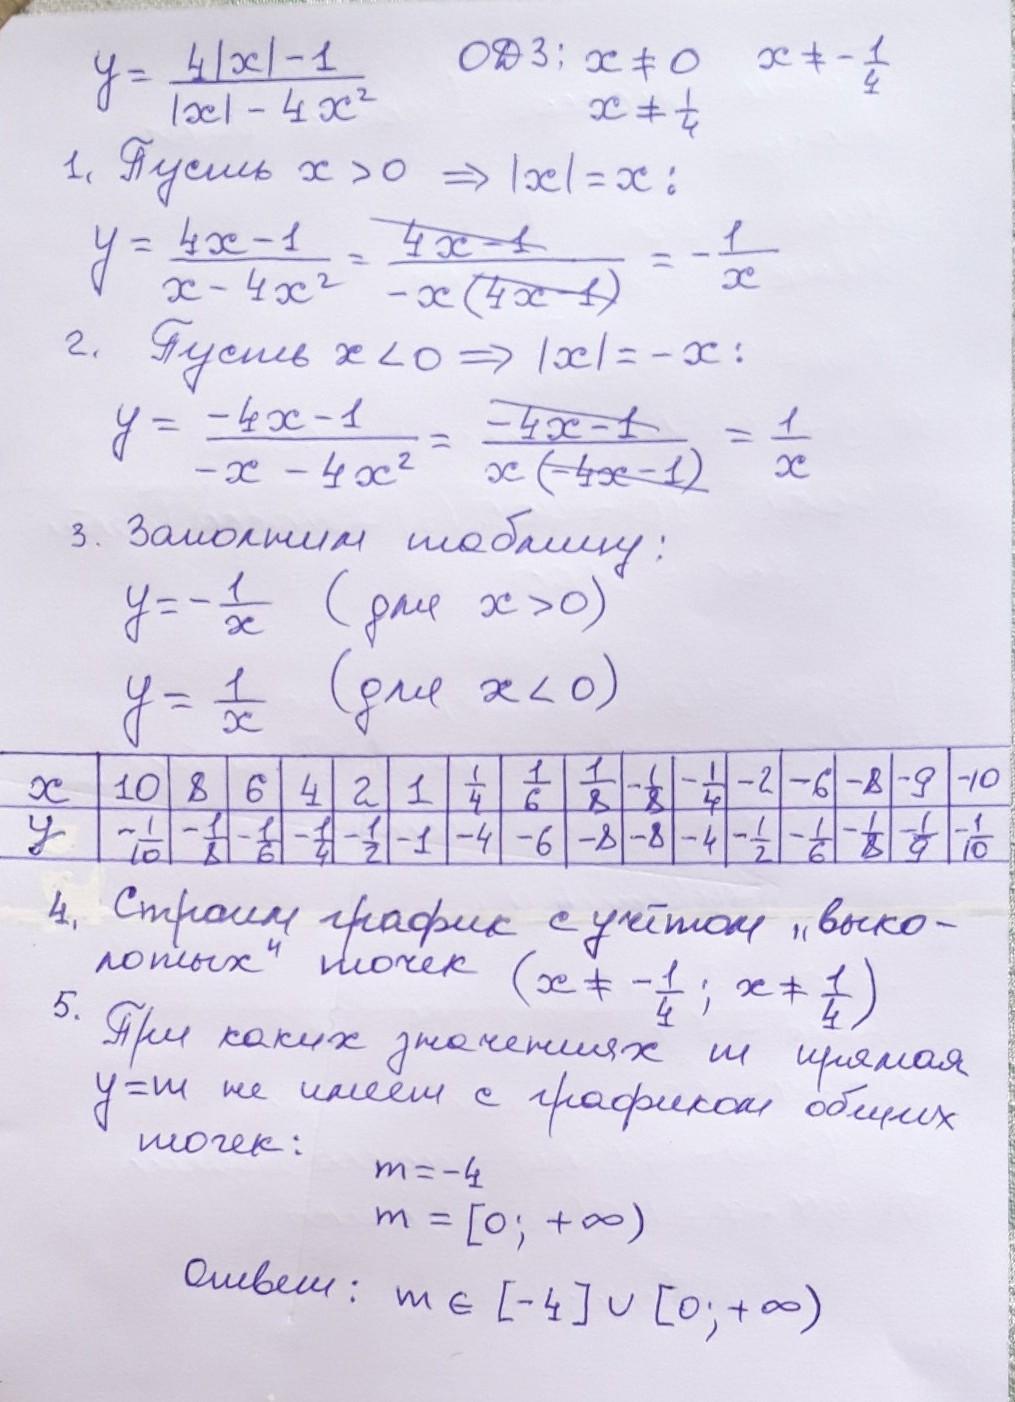 y = (4|x| - 1)/(|x| - 4x²) ОДЗ: x ≠ 0 x ≠ -1/4
x ≠ 1/4
1. Пусть x > 0 ⇒ |x| = x:
y = (4x - 1)/(x - 4x²) = (4x - 1)/(-x(4x - 1)) = -1/x
2. Пусть x < 0 ⇒ |x| = -x:
y = (-4x - 1)/(-x - 4x²) = (-4x - 1)/(x(-4x - 1)) = 1/x
3. Заполним таблицу:
y = -1/x (для x > 0)
y = 1/x (для x < 0)
x 10 8 6 4 2 1 1/4 1/6 1/8 -1/8 -1/4 -2 -6 -8 -9 -10
y -1/10 -1/8 -1/6 -1/4 -1/2 -1 -4 -6 -8 -8 -4 -1/2 -1/6 -1/8 -1/9 -1/10
4. Строим график с учётом „выко-
лотых" точек (x ≠ -1/4; x ≠ 1/4)
5. При каких значениях m прямая
y = m не имеет с графиком общих
точек:
m = -4
m = [0; +∞)
Ответ: m ∈ [-4] ∪ [0; +∞)